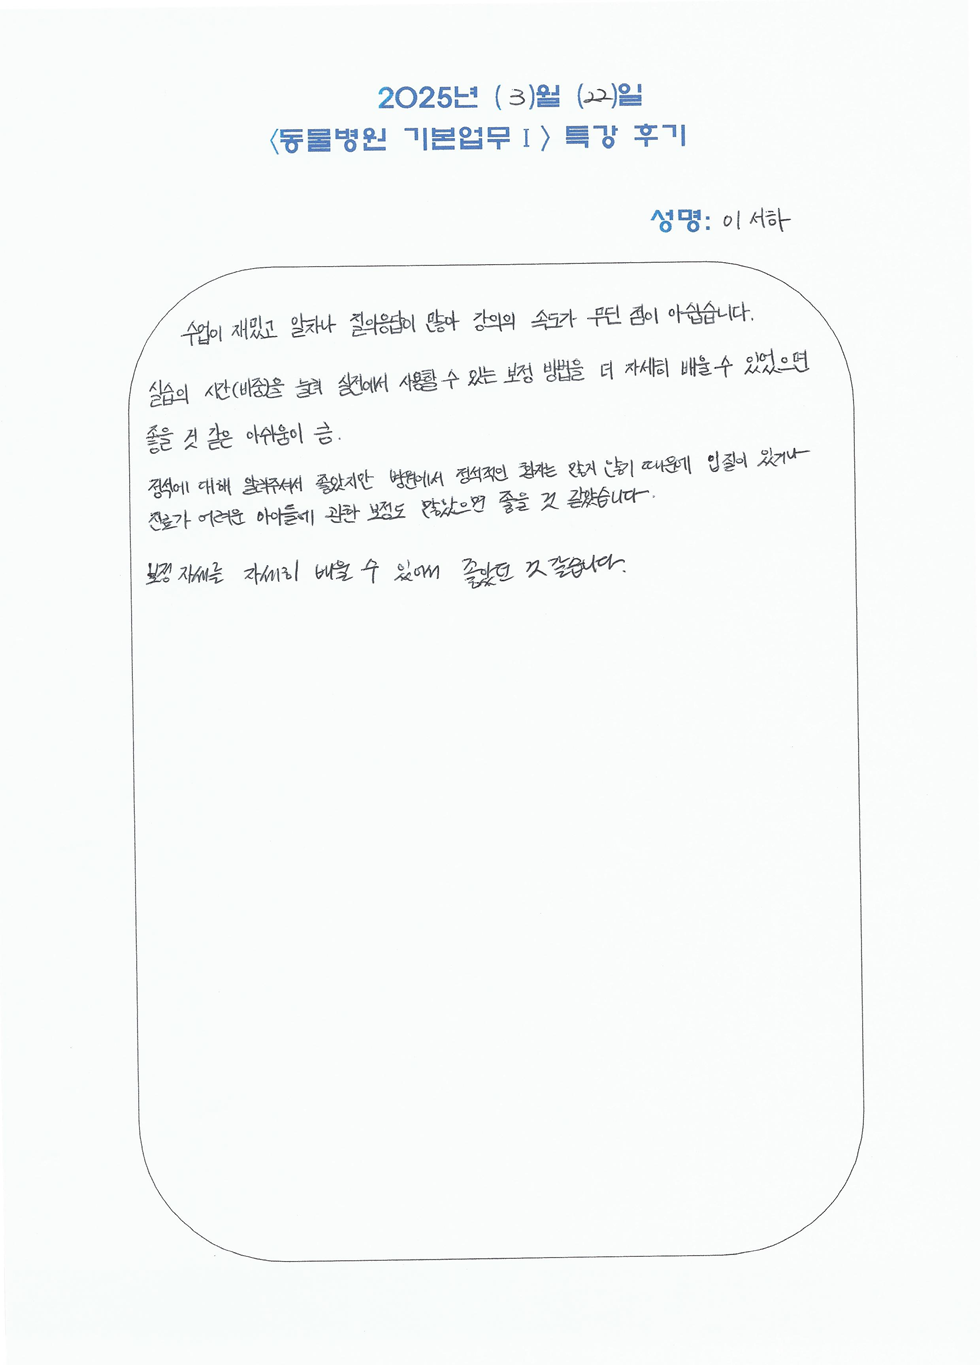 2025년 (3)월 (22)일
<동물병원 기본업무 I> 특강 후기
성명: 이서하
수업이 재밌고 알차나 질의응답이 많아 강의의 속도가 무딘 점이 아쉽습니다.
실습의 시간(비중)을 늘려 실전에서 사용할 수 있는 보정 방법을 더 자세히 배울 수 있었으면
좋을 것 같은 아쉬움이 큼.
정석에 대해 알려주셔서 좋았지만 병원에서 정석적인 환자는 많지 않기 때문에 입질이 있거나
진료가 어려운 아이들에 관한 보정도 많았으면 좋을 것 같았습니다.
보정 자세를 자세히 배울 수 있어서 좋았던 것 같습니다.